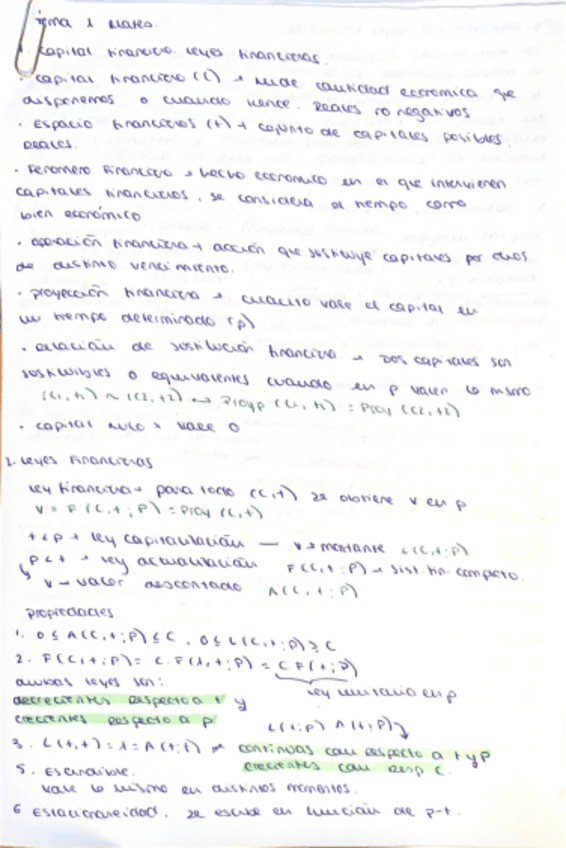 Tema 1 Mates.
1. capital financiero. Leyes financieras.
· capital financiero (C) → mide cantidad económica que
disponemos o cuando vence. Reales negativos.
· Espacio financieros (t) → conjunto de capitales posibles
reales.
· Fenómeno financiero → hecho económico en el que intervienen
capitales financieros. se considera el tiempo como
bien económico
· operación financiera → acción que sustituye capitales por otros
de distinto vencimiento.
· proyección financiera → cuanto vale el capital en
un tiempo determinado (p)
· relación de sustitución financiera → Dos capitales son
sustituibles o equivalentes cuando en p valen lo mismo
(C1, t1) ~ (C2, t2) → Proyp (C1, t1) = Proy (C2, t2)
· capital nulo → vale 0
2. Leyes Financieras
Ley financiera → para todo (C,t) se obtiene V en p
V = F (C, t; P) = Proy (C,t)
t<p → Ley capitalización — V → montante L(C,t;P)
P<t → ley actualización F(C,t;P) → Sist. fin. completo.
V → valor descontado A(C,t;P)
propiedades
1. 0 ≤ A(C,t;P) ≤ C, 0 ≤ L(C,t;P) ≥ C
2. F(C,t;P) = C·F(1,t;P) = C F(t;P)
ambas leyes son: ley unitaria en p
decrecientes respecto a t y
crecientes respecto a p L(t;P) A(t;P)
3. L(t,t) = 1 = A(t;t) continuas con respecto a t y p
crecientes con resp C.
5. Escindible.
vale lo mismo en distintos momentos.
6 Estacionareidad. se escribe en función de p-t.